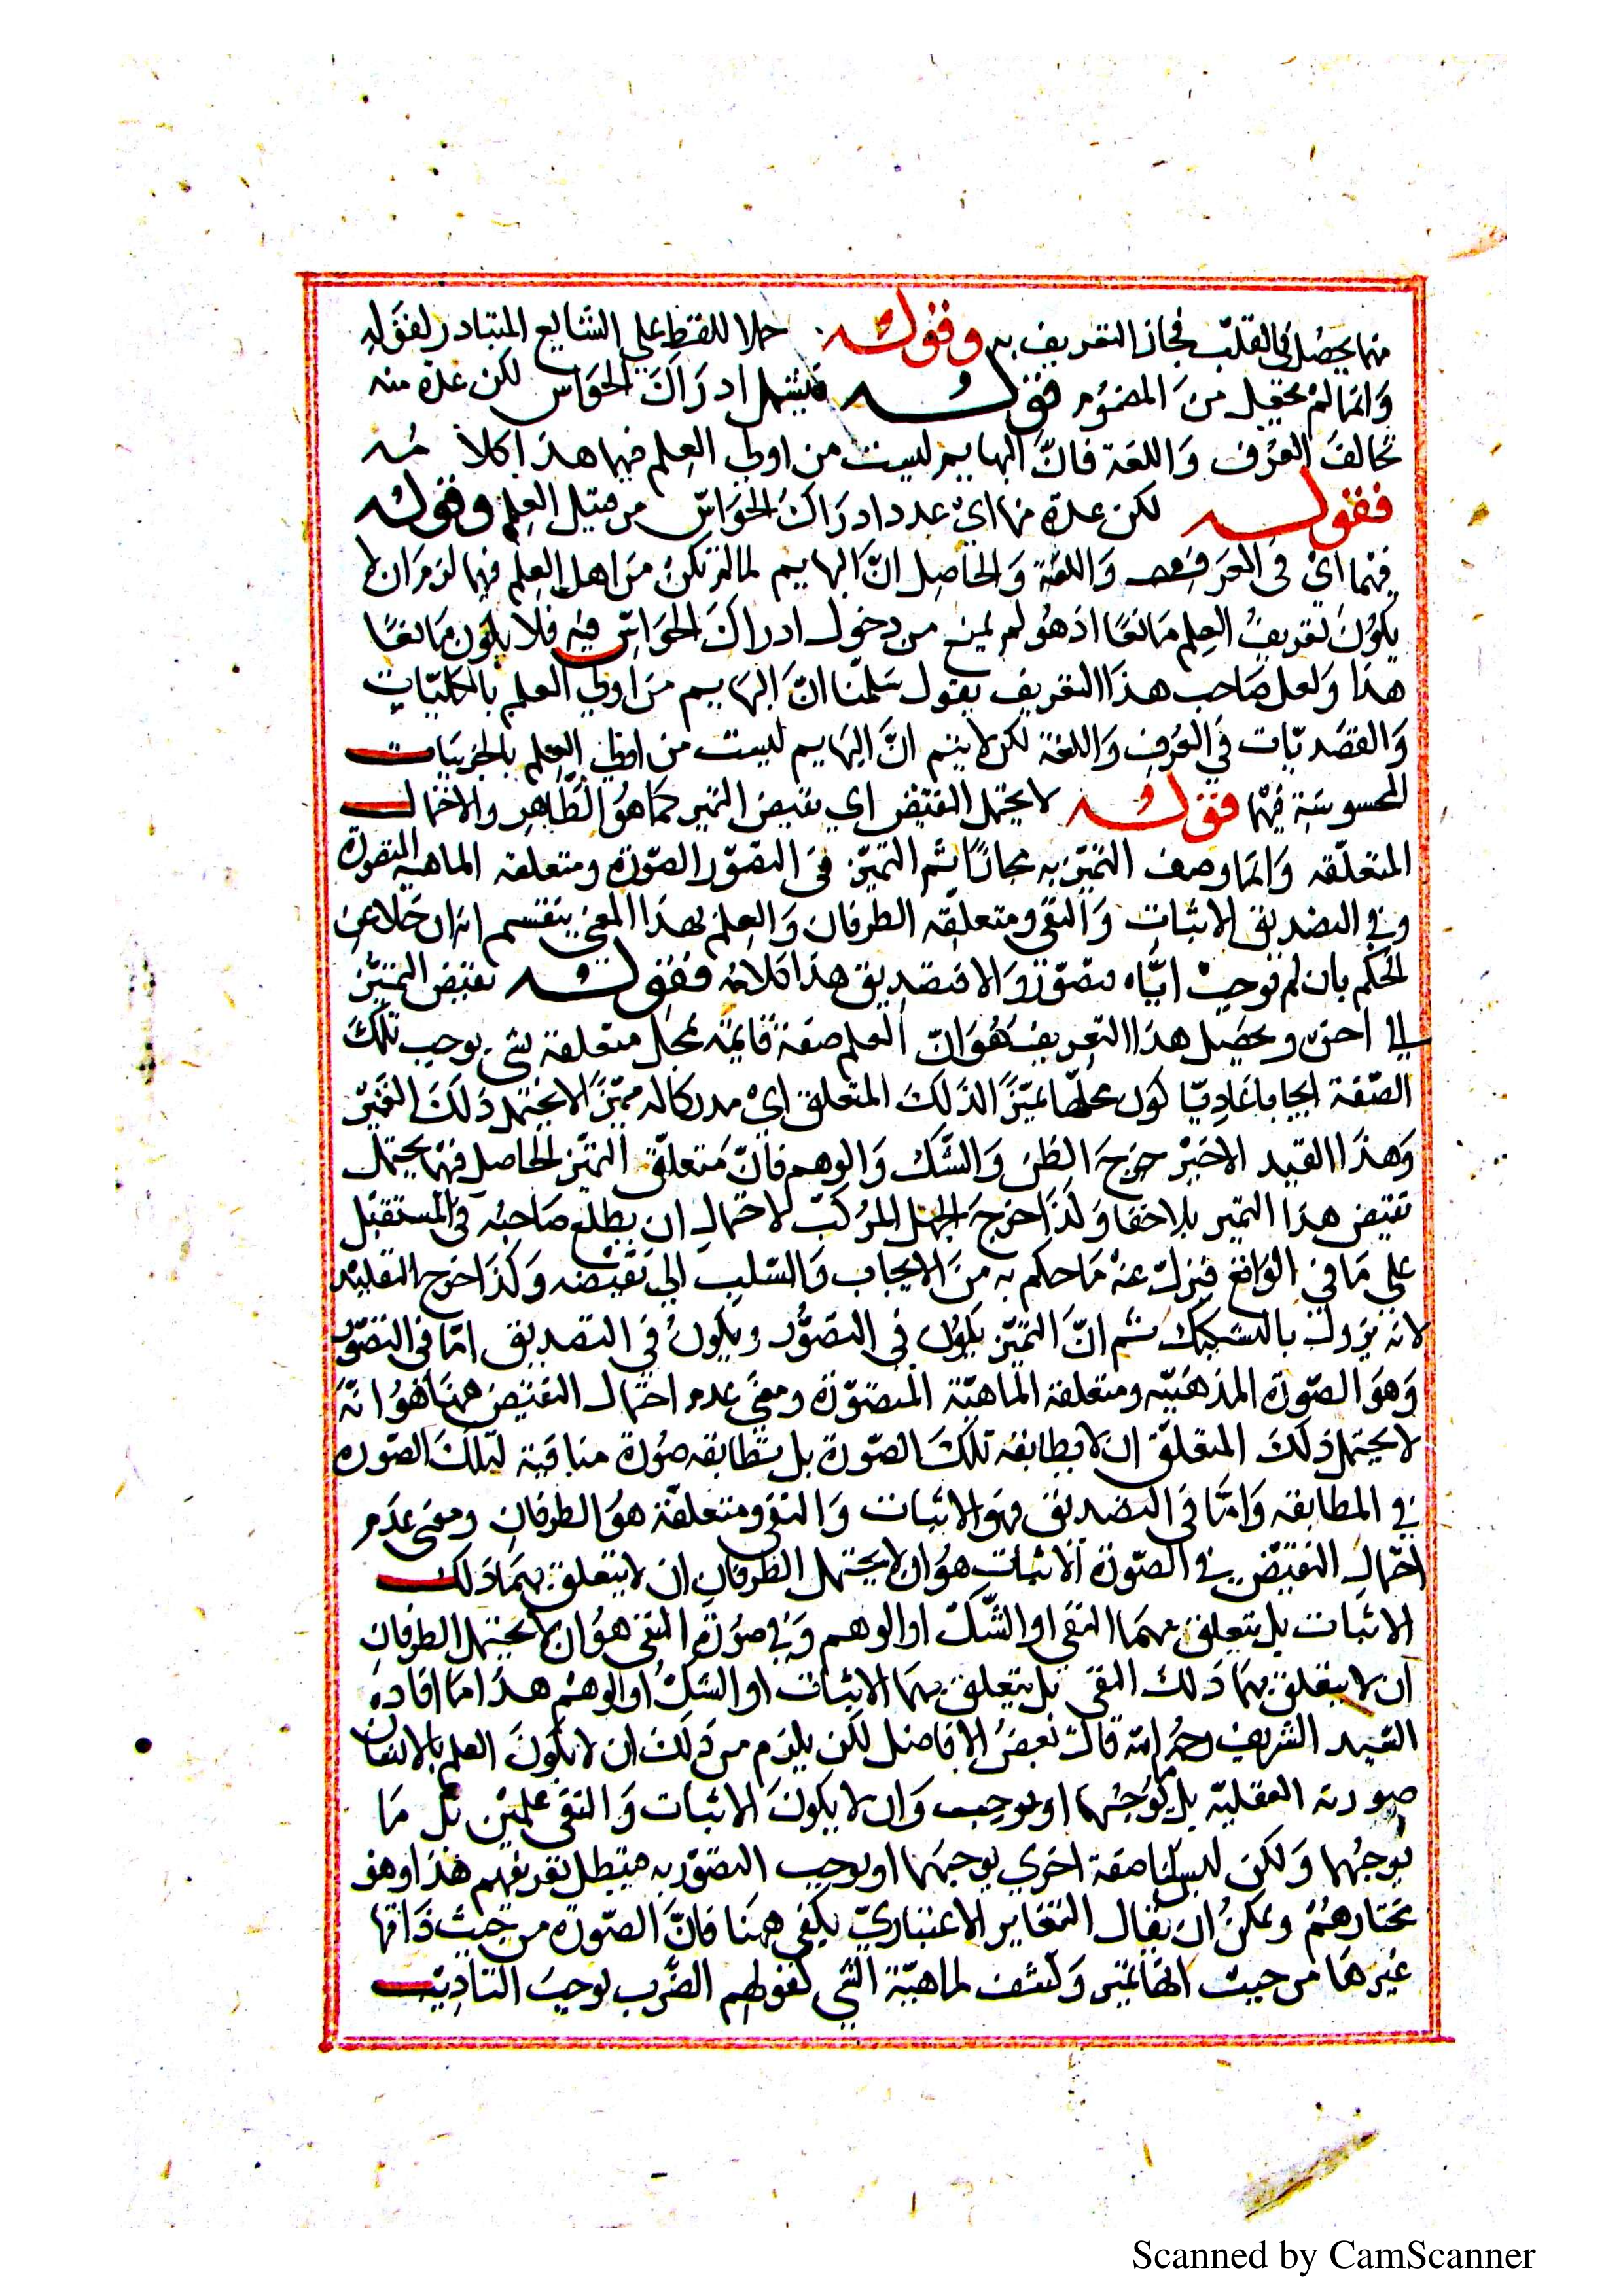 منها يحصل في القلب فجاز التعريف به وقوله حملا للفظ على الشايع المتبادر لقوله
وانما لم يحمل من المفهوم فقوله فيشمل ادراك الحواس لكن عده منه
تخالف العرف واللغة فان البهايم ليست من اولي العلم فيهما هذا كلامه
فقوله لكن عده منها اي عد ادراك الحواس من قبيل العلم وقوله
فيهما اي في العرف واللغة والحاصل ان البهايم لما لم تكن من اهل العلم فيهما لزم ان لا
يكون تعريف العلم مانعًا اذ هو لم يمنع من دخول ادراك الحواس فيه فلا يكون مانعًا
هذا ولعل صاحب هذا التعريف يقول سلمنا ان البهايم من اولي العلم بالكليات
والتصديقات في العرف واللغة لكن لا يتم ان البهايم ليست من اولي العلم بالجزييات
المحسوسة فيهما فقوله لا يحتمل النقيض اي نقيض التميز كما هو الظاهر والاحتمال
المتعلقه وانما وصف التميز به مجازًا ثم التميز في التصور الصورة ومتعلقه الماهيه المتصورة
وفي التصديق الاثبات والنفي ومتعلقه الطرفان والعلم بهذا المعنى ينقسم انه ان خلا عن
الحكم بان لم يوجب اياه فتصور والا فتصديق هذا كلامه فقوله نقيض التميز
الى اخره وتحصيل هذا التعريف هو ان العلم صفة قايمة بمحل متعلقة بشي يوجب تلك
الصفة ايجابا عاديّا كون محلها مميّزًا لذلك المتعلق اي مدركا له مميزًا لا يحتمل ذلك التميز
وهذا القيد الاخير خرج الظن والشك والوهم فان متعلق التميز الحاصل فيها يحتمل
نقيض هذا التميز بلا خفا ولذا اخرج الجهل المركب لاحتمال ان يطلع صاحبه في المستقبل
على ما في الواقع فيزل عنه ما حكم به من الايجاب والسلب الي نقيضه وكذا اخرج التقليد
لانه يزول بالتشكيك ثم ان التميز يكون في التصور ويكون في التصديق اما في التصور
وهو الصورة المذهنيه ومتعلقة الماهية المتصورة ومعنى عدم احتمال النقيض ههنا هو انه
لا يحتمل ذلك المتعلق ان لا يطابقه تلك الصورة بل تطابقه صورة منافية لتلك الصوره
في المطابقه واما في التصديق فهو الاثبات والنفي ومتعلقة هو الطرفان ومعنى عدم
احتمال النقيض في الصورة الاثبات هو ان لا يحتمل الطرفان ان لا يتعلق بهما ذلك
الاثبات بل يتعلق بهما النفي او الشك او الوهم وفي صورة النفي هو ان لا يحتمل الطرفان
ان لا يتعلق بهما ذلك النفي بل يتعلق بهما الاثبات او الشك او الوهم هذا ما افاده
السيد الشريف رحمه الله قال بعض الافاضل لكن يلزم من ذلك ان لا يكون العلم بالانسان
صورته العقلية بل ما يوجبها او يوجب وان لا يكون الاثبات والنفي علمين بل ما
يوجبهما ولكن ليس لنا صفة اخري يوجبهما او يوجب التصور به فيبطل تعريفهم هذا وهو
مختارهم ويمكن ان يقال التغاير الاعتباريّ يكفي ههنا فان الصورة من حيث ذاتها
غيرها من حيث انها تميز وكشف لماهية الشي كقولهم الضرب يوجب التاديب
Scanned by CamScanner